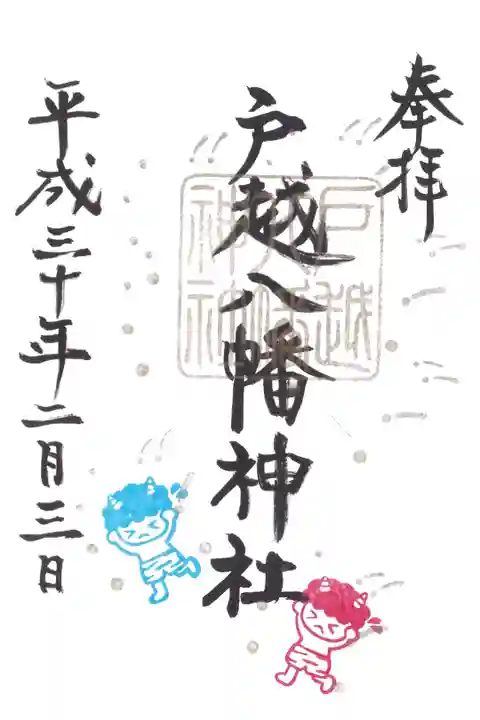 奉拝
戸越八幡神社
戸越
八幡
平成三十年二月三日